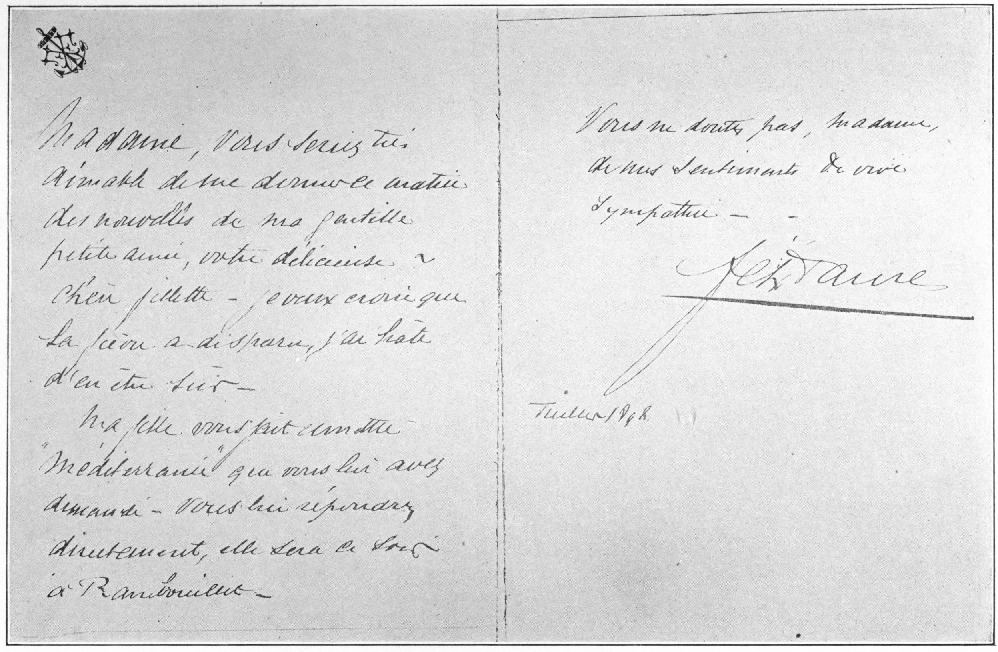 Madame, vous seriez très
aimable de me donner ce matin
des nouvelles de ma gentille
petite amie, votre délicieuse
chère fillette – je veux croire que
la fièvre a disparu, j'ai hâte
d'en être sûr –
Ma fille vous fait remettre
"Méditerranée" que vous lui avez
demandé – Vous lui répondrez
directement, elle sera ce soir
à Rambouillet –
Vous ne doutez pas, madame,
de mes sentiments de vive
sympathie – -
Félix Faure
Juillet 1898